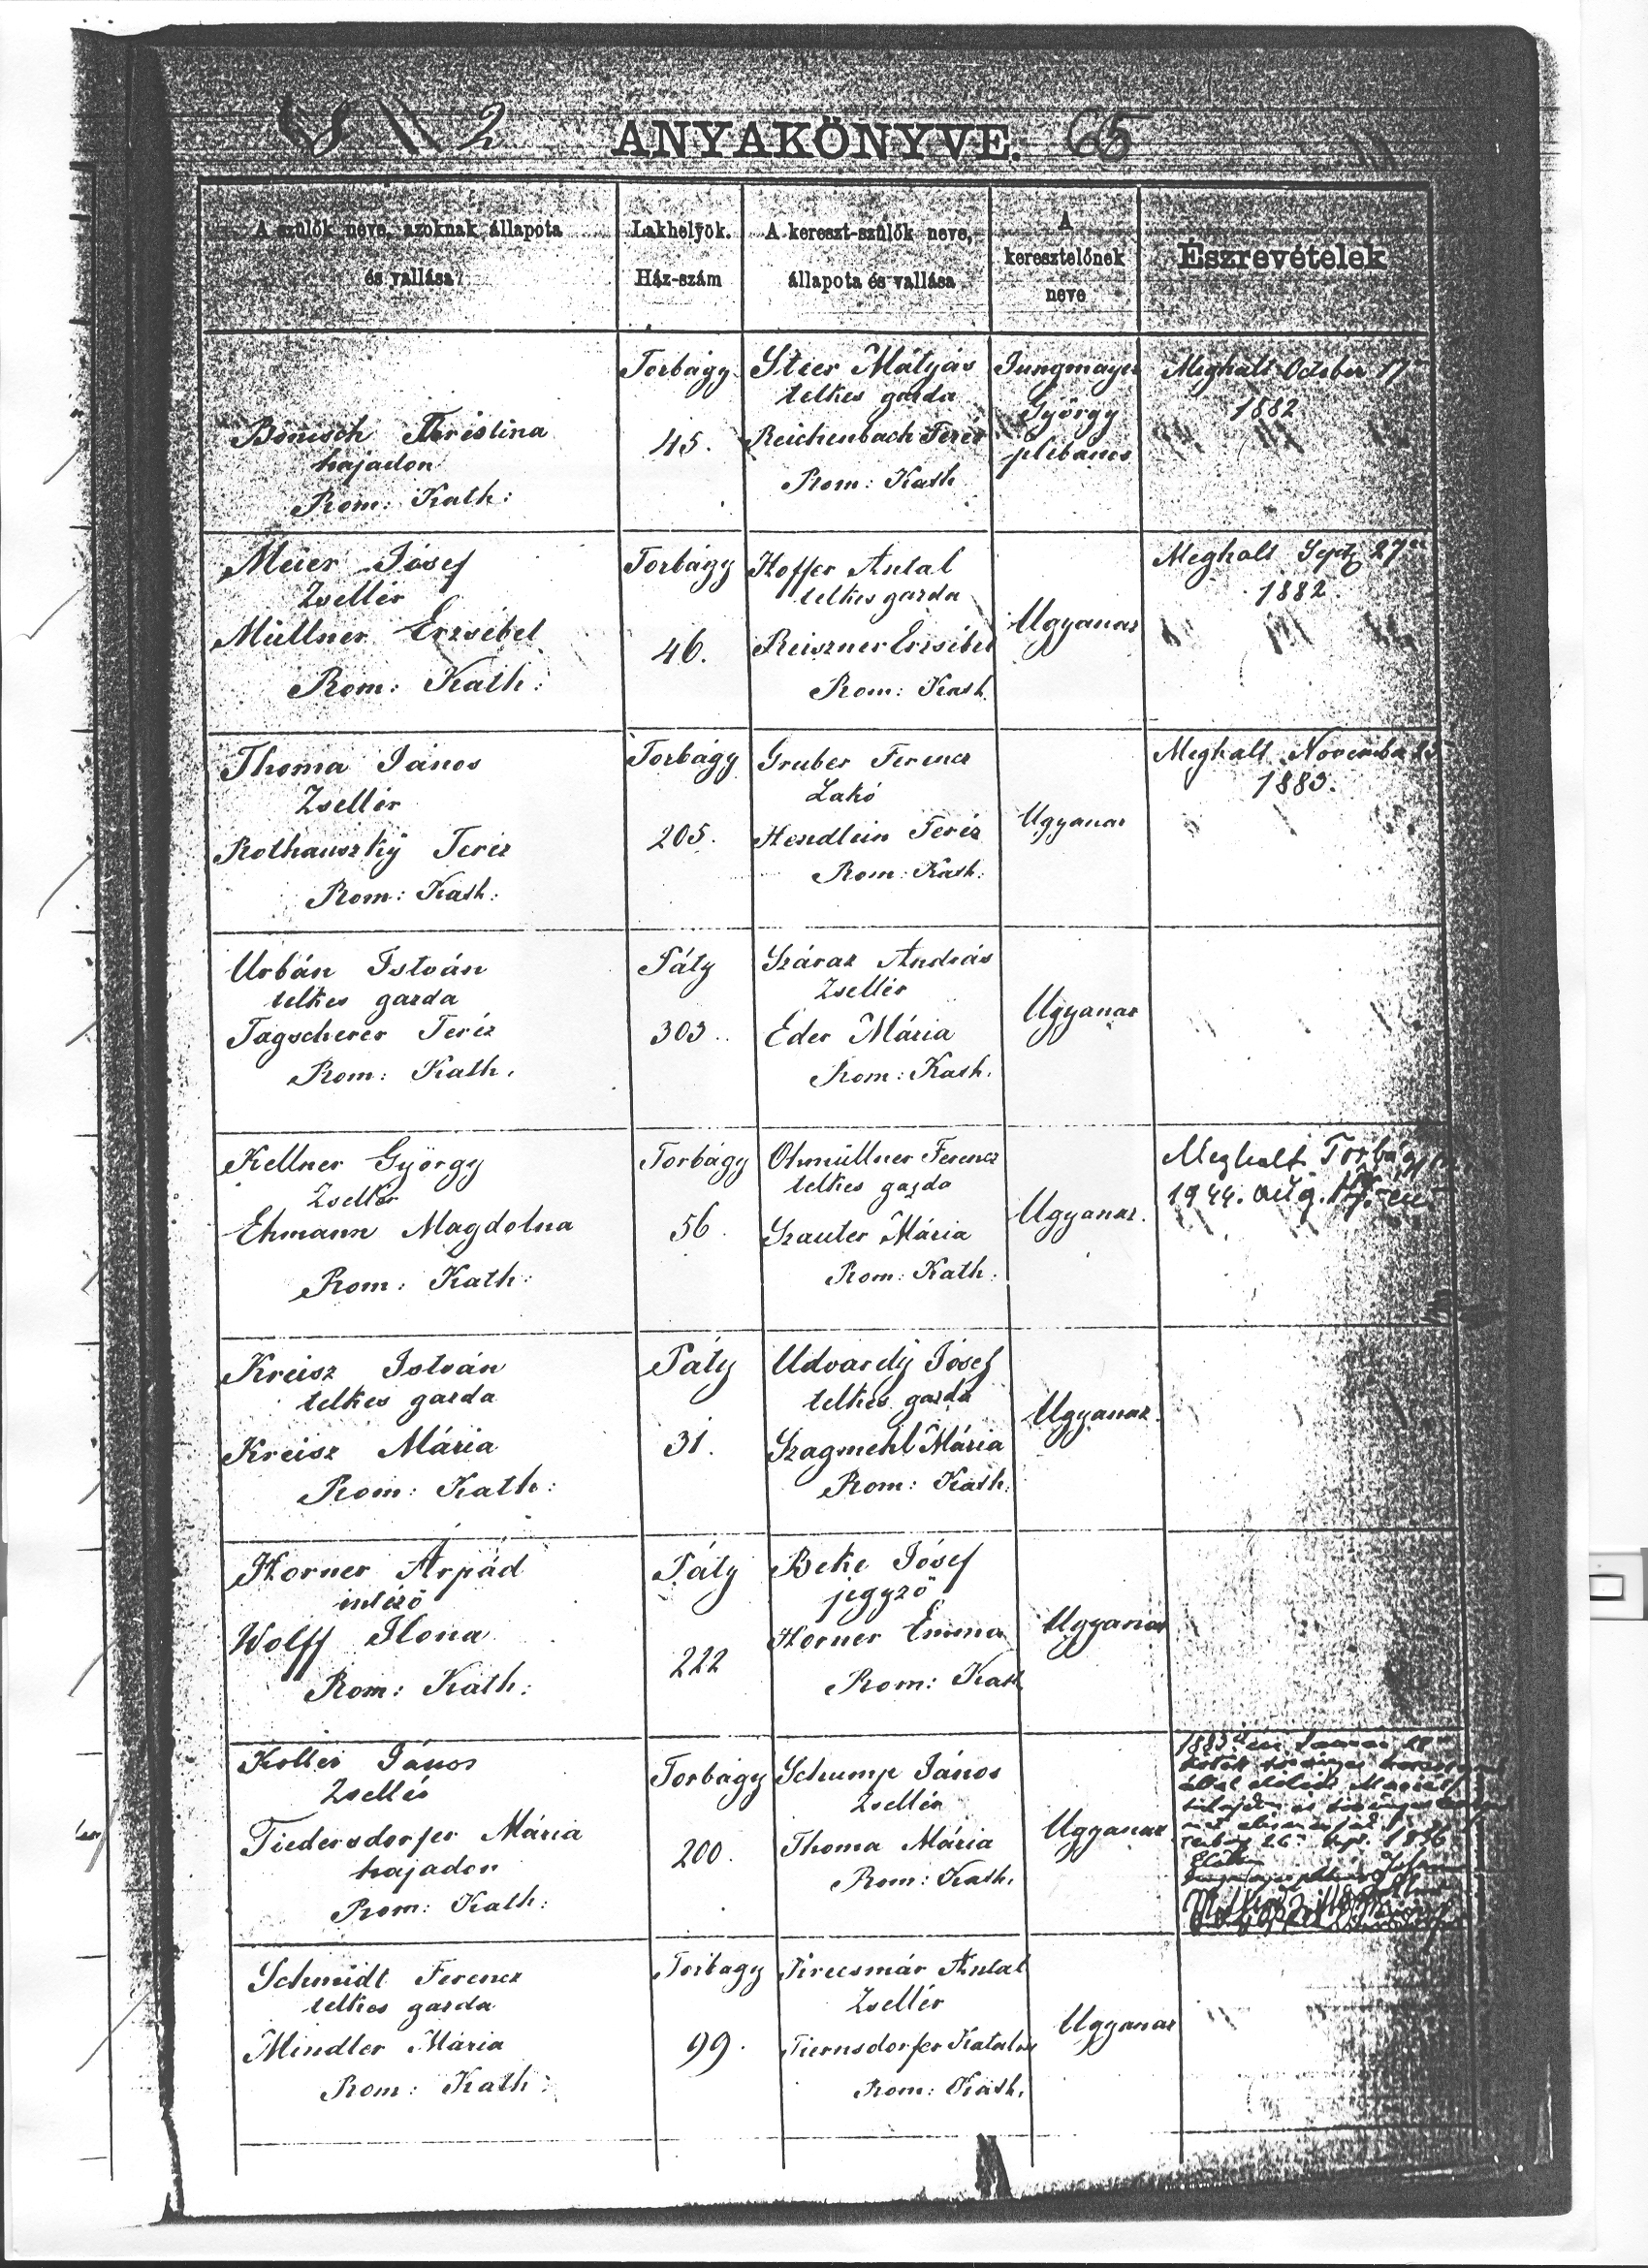 2 ANYAKÖNYVE. 65
A szülők neve, azoknak állapota
és vallása
Lakhelyök.
Ház-szám
A kereszt-szülők neve,
állapota és vallása
A
keresztelőnek
neve
Észrevételek
Krisztina
hajadon
Rom: Kath:
Torbágy
45.
Steer Mátyás
telkes gazda
Reichenbach Teréz
Rom: Kath
Jungmayer
György
plébános
Meghalt October 17
1882
Meier Jósef
Zsellér
Müllner Erzsébet
Rom: Kath:
Torbágy
46.
Hoffer Antal
telkes gazda
Reiszner Erzsébet
Rom: Kath
Ugyanaz
Meghalt Sept 27
1882.
Thoma János
Zsellér
Rothauszky Teréz
Rom: Kath:
Torbágy
205.
Gruber Ferencz
Lakó
Hendlein Teréz
Rom: Kath:
Ugyanaz
Meghalt November 25
1883.
Urbán István
telkes gazda
Tagscherer Teréz
Rom: Kath.
Páty
303.
Száraz András
Zsellér
Eder Mária
Rom: Kath.
Ugyanaz
Kellner György
Zsellér
Ehmann Magdolna
Rom: Kath:
Torbágy
56.
Ohmüllner Ferencz
telkes gazda
Szauter Mária
Rom: Kath:
Ugyanaz.
Meghalt Torbágyon
1944. aug.
Kreisz István
telkes gazda
Kreisz Mária
Rom: Kath:
Páty
31.
Udvardy Jósef
telkes gazda
Szagmehl Mária
Rom: Kath.
Ugyanaz.
Horner Árpád
intéző
Wolff Ilona
Rom: Kath:
Páty
222
Beke Jósef
jegyző
Horner Emma
Rom: Kath
Ugyanaz
Koller János
Zsellér
Tiedersdorfer Mária
hajadon
Rom: Kath:
Torbágy
200.
Schump János
Zsellér
Thoma Mária
Rom: Kath.
Ugyanaz
Schmidt Ferencz
telkes gazda
Mindler Mária
Rom: Kath:
Torbágy
99.
Pircsmár Antal
Zsellér
Tiernsdorfer Katalin
Rom: Kath.
Ugyanaz